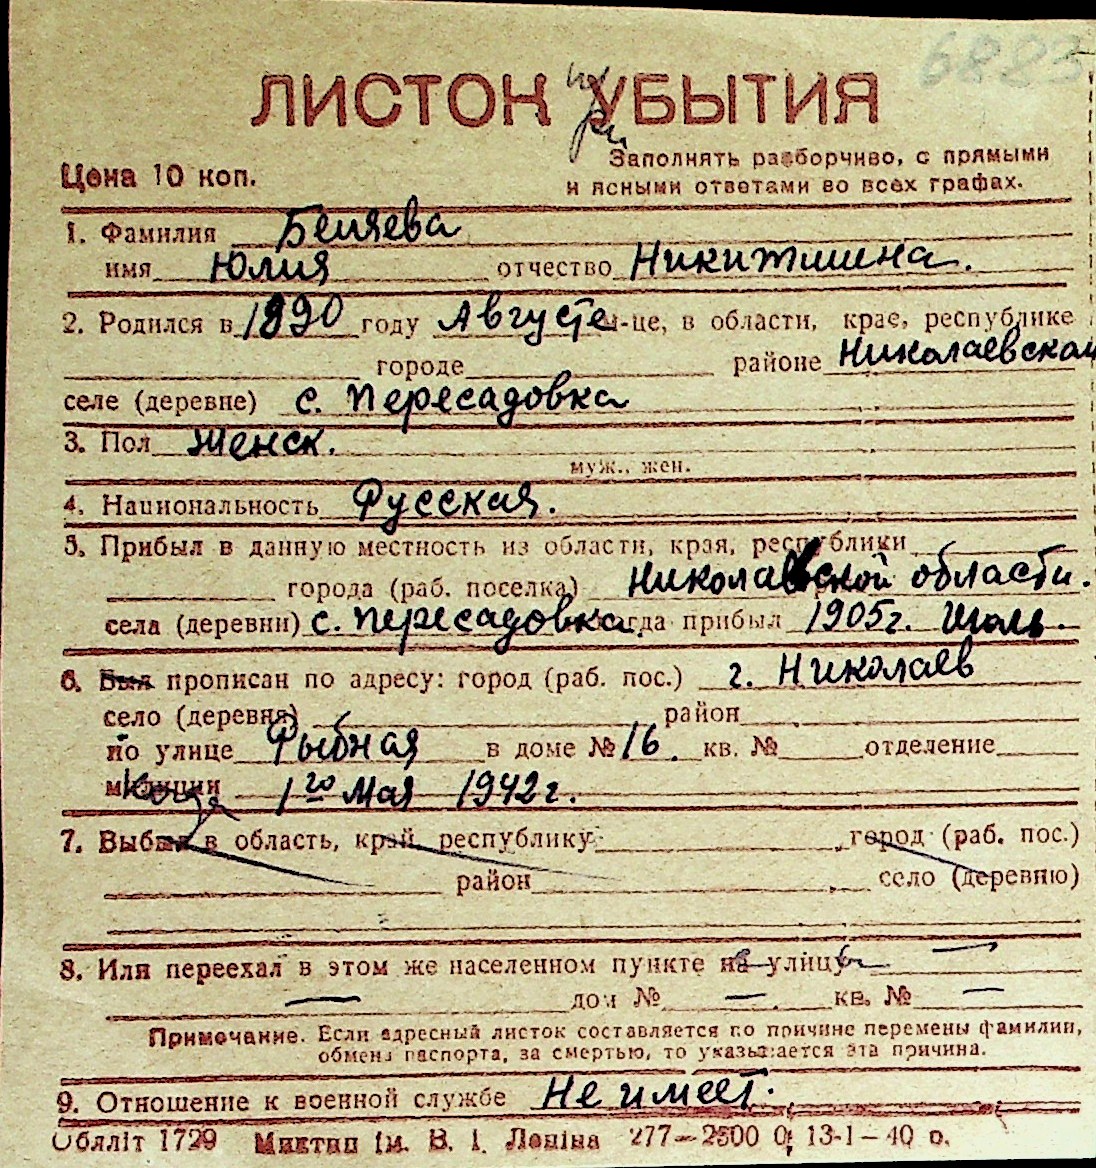 6883
ЛИСТОК при УБЫТИЯ
Цена 10 коп.
Заполнять разборчиво, с прямыми
и ясными ответами во всех графах.
1. Фамилия Беляева
имя Юлия отчество Никитишна.
2. Родился в 1890 году Августе м-це, в области, крае, республике
городе районе Николаевской
селе (деревне) с. Пересадовка
3. Пол женск.
муж., жен.
4. Национальность Русская.
5. Прибыл в данную местность из области, края, республики
города (раб. поселка) Николаевской области.
села (деревни) с. Пересадовка когда прибыл 1905г. Июль.
6. Был прописан по адресу: город (раб. пос.) г. Николаев
село (деревня) район
по улице Рыбная в доме № 16. кв. № отделение
милиции Когда 1го Мая 1942г.
7. Выбыл в область, край, республику город (раб. пос.)
район село (деревню)
8. Или переехал в этом же населенном пункте на улицу —
— дом № — кв. № —
Примечание. Если адресный листок составляется по причине перемены фамилии,
обмена паспорта, за смертью, то указывается эта причина.
9. Отношение к военной службе Не имеет.
Обліт 1729 Миктип ім. В. І. Леніна 277—2500 0, 13-1—40 р.